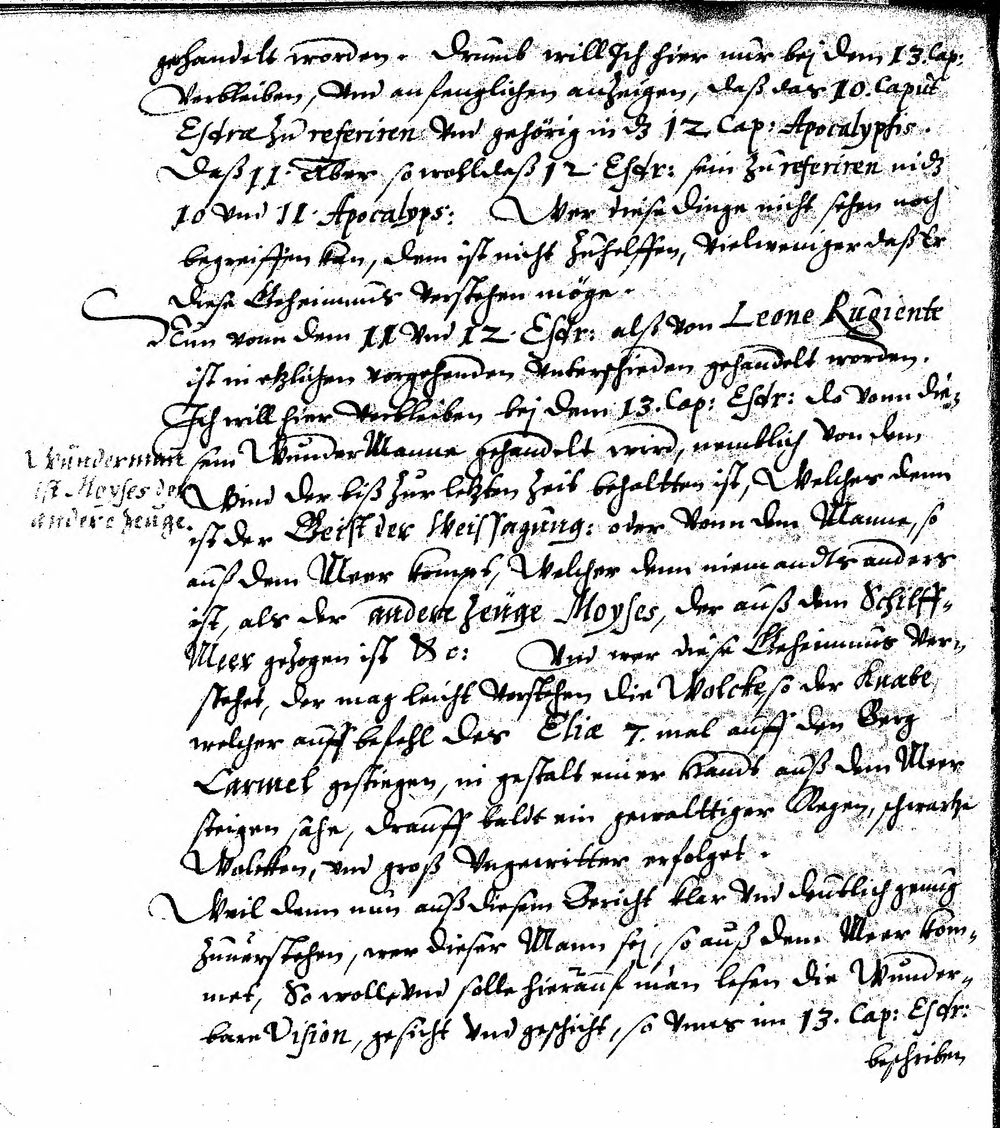 gehandelt worden. Drumb will Ich hier nur bej dem 13. Cap:
Verbleiben, Vnd anfenglichen anzeigen, daß das 10. Caput
Esdræ zu referiren Vnd gehörig in dz 12 Cap: Apocalypsis.
Daß 11. Aber sowohl daß 12. Esdr: sein zu referiren in dz
10 Vnd 11. Apocalyps: Wer diese dinge nicht sehen noch
begreiffen kan, dem ist nicht zuhelffen, Vielweniger daß Er
diese Geheimnus Verstehen möge.
Nun vonn dem 11 Vnd 12. Esdr: alß von Leone Rugiente
ist in etzlichen vorgehenden Vnterschieden gehandelt worden.
Ich will hier Verbleiben bej dem 13. Cap: Esdr: do vonn die-
sem WunderManne gehandelt wird, nemblich Von dem
Wunderman
ist Moyses der
andere zeuge.
Wind der biß zur letzten Zeit behaltten ist, Welcher denn
ist der Geist der Weissagung: oder Vonn dem Manne, so
auß dem Meer kompt, Welcher denn niemandts anders
ist, als der andere Zeuge Moyses, der auß dem Schilff-
Meer gezogen ist &c: Vnd wer diese Geheimnus Ver-
stehet, der mag leicht Verstehen die Wolcke, so der Knabe,
welcher auff befehl des Eliæ 7 mal auff den Berg
Carmel gestiegen, in gestalt einer Handt auß dem Meer
steigen sahe, drauff baldt ein gewalttiger Regen, schwartze
Wolcken, vnd groß Vngewitter erfolget.
Weil denn nun auß diesem Bericht klar Vnd deutlich genug
Zuuerstehen, wer dieser Mann sej, so auß dem Meer kom-
met, So wolle Vnd solle hierauf man lesen die Wunder-
bare Vision, gesicht Vnd geschicht, so Vnns im 13. Cap: Esdr:
beschriben